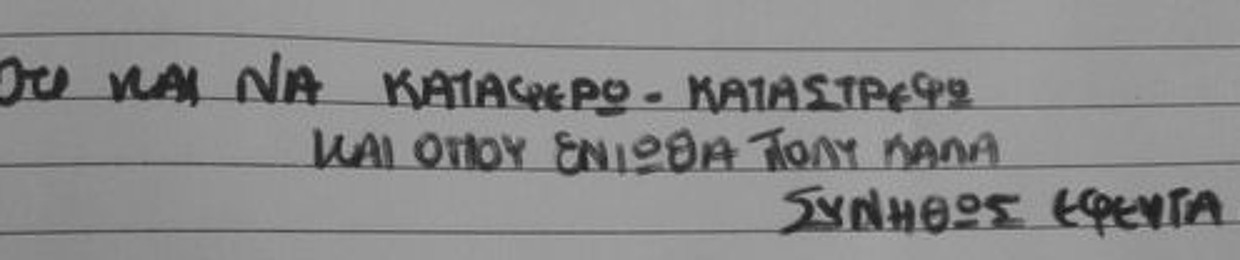 ΟΤΙ ΚΑΙ ΝΑ ΚΑΤΑΦΕΡΩ - ΚΑΤΑΣΤΡΕΦΩ
ΚΑΙ ΟΠΟΥ ΕΝΙΩΘΑ ΠΟΛΥ ΚΑΛΑ
ΣΥΝΗΘΩΣ ΕΦΕΥΓΑ